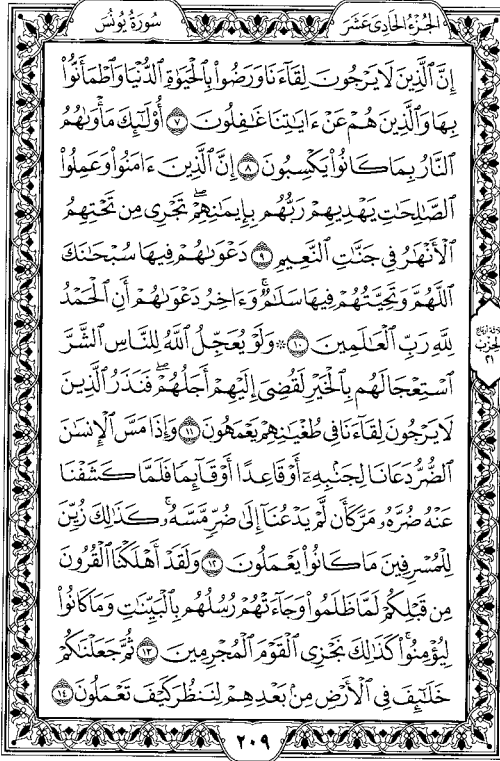 سُورَةُ يُونُسَ
الجُزْءُ الحَادِى عَشَرَ
إِنَّ ٱلَّذِينَ لَا يَرْجُونَ لِقَآءَنَا وَرَضُوا۟ بِٱلْحَيَوٰةِ ٱلدُّنْيَا وَٱطْمَأَنُّوا۟
بِهَا وَٱلَّذِينَ هُمْ عَنْ ءَايَـٰتِنَا غَـٰفِلُونَ ٧ أُو۟لَـٰٓئِكَ مَأْوَىٰهُمُ
ٱلنَّارُ بِمَا كَانُوا۟ يَكْسِبُونَ ٨ إِنَّ ٱلَّذِينَ ءَامَنُوا۟ وَعَمِلُوا۟
ٱلصَّـٰلِحَـٰتِ يَهْدِيهِمْ رَبُّهُم بِإِيمَـٰنِهِمْ ۖ تَجْرِى مِن تَحْتِهِمُ
ٱلْأَنْهَـٰرُ فِى جَنَّـٰتِ ٱلنَّعِيمِ ٩ دَعْوَىٰهُمْ فِيهَا سُبْحَـٰنَكَ
ٱللَّهُمَّ وَتَحِيَّتُهُمْ فِيهَا سَلَـٰمٌ ۚ وَءَاخِرُ دَعْوَىٰهُمْ أَنِ ٱلْحَمْدُ
لِلَّهِ رَبِّ ٱلْعَـٰلَمِينَ ١٠ ۞ وَلَوْ يُعَجِّلُ ٱللَّهُ لِلنَّاسِ ٱلشَّرَّ
ٱسْتِعْجَالَهُم بِٱلْخَيْرِ لَقُضِىَ إِلَيْهِمْ أَجَلُهُمْ ۖ فَنَذَرُ ٱلَّذِينَ
لَا يَرْجُونَ لِقَآءَنَا فِى طُغْيَـٰنِهِمْ يَعْمَهُونَ ١١ وَإِذَا مَسَّ ٱلْإِنسَـٰنَ
ٱلضُّرُّ دَعَانَا لِجَنۢبِهِۦٓ أَوْ قَاعِدًا أَوْ قَآئِمًا فَلَمَّا كَشَفْنَا
عَنْهُ ضُرَّهُۥ مَرَّ كَأَن لَّمْ يَدْعُنَآ إِلَىٰ ضُرٍّ مَّسَّهُۥ ۚ كَذَٰلِكَ زُيِّنَ
لِلْمُسْرِفِينَ مَا كَانُوا۟ يَعْمَلُونَ ١٢ وَلَقَدْ أَهْلَكْنَا ٱلْقُرُونَ
مِن قَبْلِكُمْ لَمَّا ظَلَمُوا۟ وَجَآءَتْهُمْ رُسُلُهُم بِٱلْبَيِّنَـٰتِ وَمَا كَانُوا۟
لِيُؤْمِنُوا۟ ۚ كَذَٰلِكَ نَجْزِى ٱلْقَوْمَ ٱلْمُجْرِمِينَ ١٣ ثُمَّ جَعَلْنَـٰكُمْ
خَلَـٰٓئِفَ فِى ٱلْأَرْضِ مِنۢ بَعْدِهِمْ لِنَنظُرَ كَيْفَ تَعْمَلُونَ ١٤
الحِزْب
٢١
٢٠٩